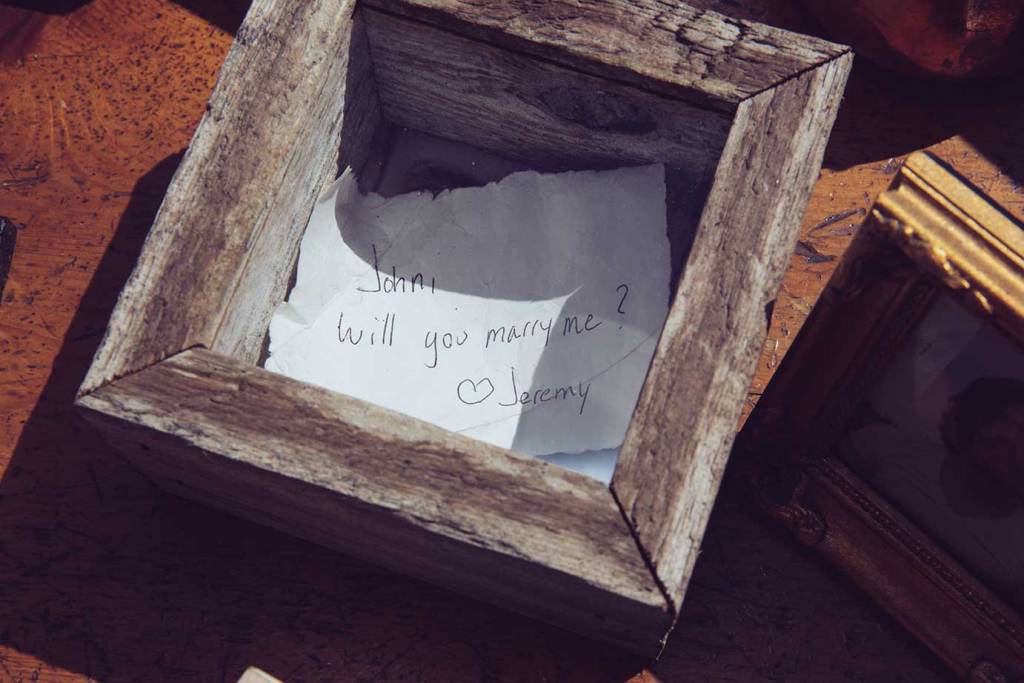 John,
Will you marry me?
♡ Jeremy